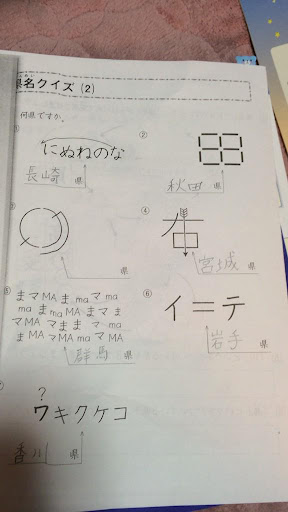 県名クイズ (2)
何県ですか。
にぬねのな
長崎 県
②
秋田 県
県
④
宮城 県
⑤
まマMAまmaマma
maまmaMAまマま
マMAマままマma
まMAマMAmaMA
群馬 県
⑥
イ=テ
岩手 県
?
ワキクケコ
香川 県